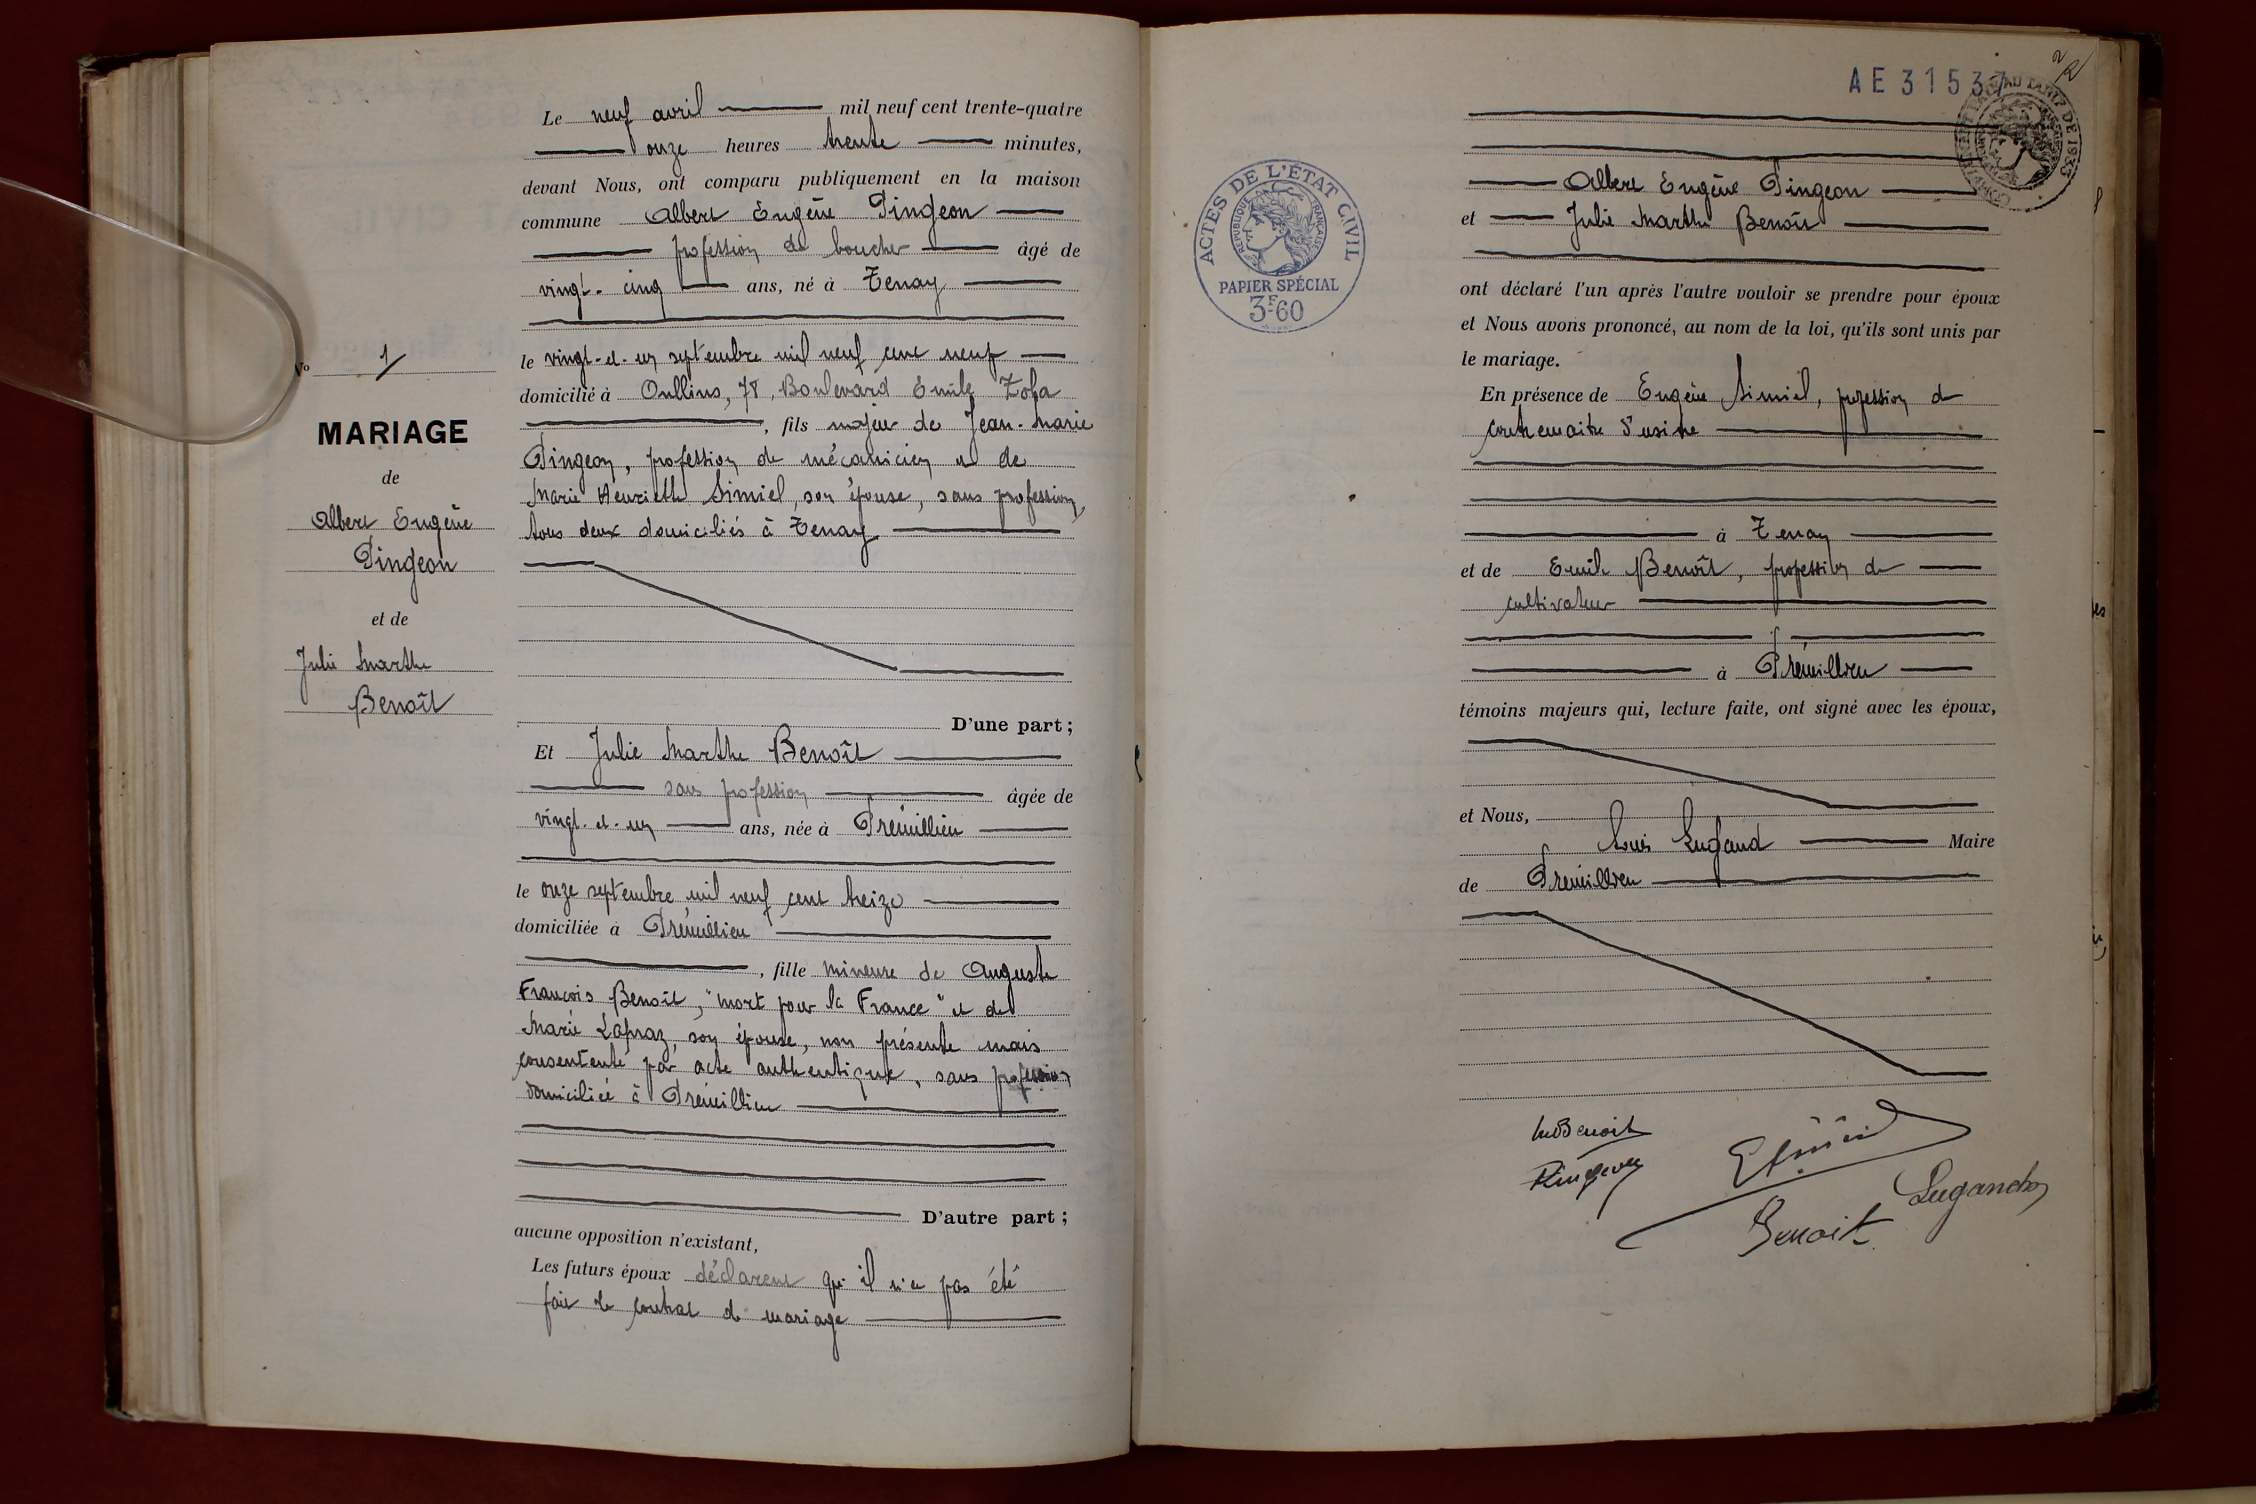 N° 1
MARIAGE
de
Albert Eugène
Pingeon
et de
Julie Marthe
Benoît
Le neuf avril mil neuf cent trente-quatre
onze heures trente minutes,
devant Nous, ont comparu publiquement en la maison
commune Albert Eugène Pingeon
profession de boucher âgé de
vingt-cinq ans, né à Tenay
le vingt-et-un septembre mil neuf cent neuf
domicilié à Oullins, 78, Boulevard Emile Zola
, fils majeur de Jean-Marie
Pingeon, profession de mécanicien et de
Marie Henriette Simiel, son épouse, sans profession,
tous deux domiciliés à Tenay
D'une part ;
Et Julie Marthe Benoît
sans profession âgée de
vingt-et-un ans, née à Prémillieu
le onze septembre mil neuf cent treize
domiciliée à Prémillieu
, fille mineure de Auguste
François Benoît, "mort pour la France" et de
Marie Lapraz, son épouse, non présente mais
consentente par acte authentique, sans profession
domiciliée à Prémillieu
D'autre part ;
aucune opposition n'existant,
Les futurs époux déclarent qu'il n'a pas été
fait de contrat de mariage
2
AE 31537
ACTES DE L'ÉTAT CIVIL
RÉPUBLIQUE FRANÇAISE
PAPIER SPÉCIAL
3F60
Albert Eugène Pingeon
et Julie Marthe Benoît
ont déclaré l'un après l'autre vouloir se prendre pour époux
et Nous avons prononcé, au nom de la loi, qu'ils sont unis par
le mariage.
En présence de Eugène Simiel, profession de
contremaitre d'usine
à Tenay
et de Emile Benoît, profession de
cultivateur
à Prémillieu
témoins majeurs qui, lecture faite, ont signé avec les époux,
et Nous,
Louis Lugand Maire
de Prémillieu
Benoit
Pingeon
Benoit